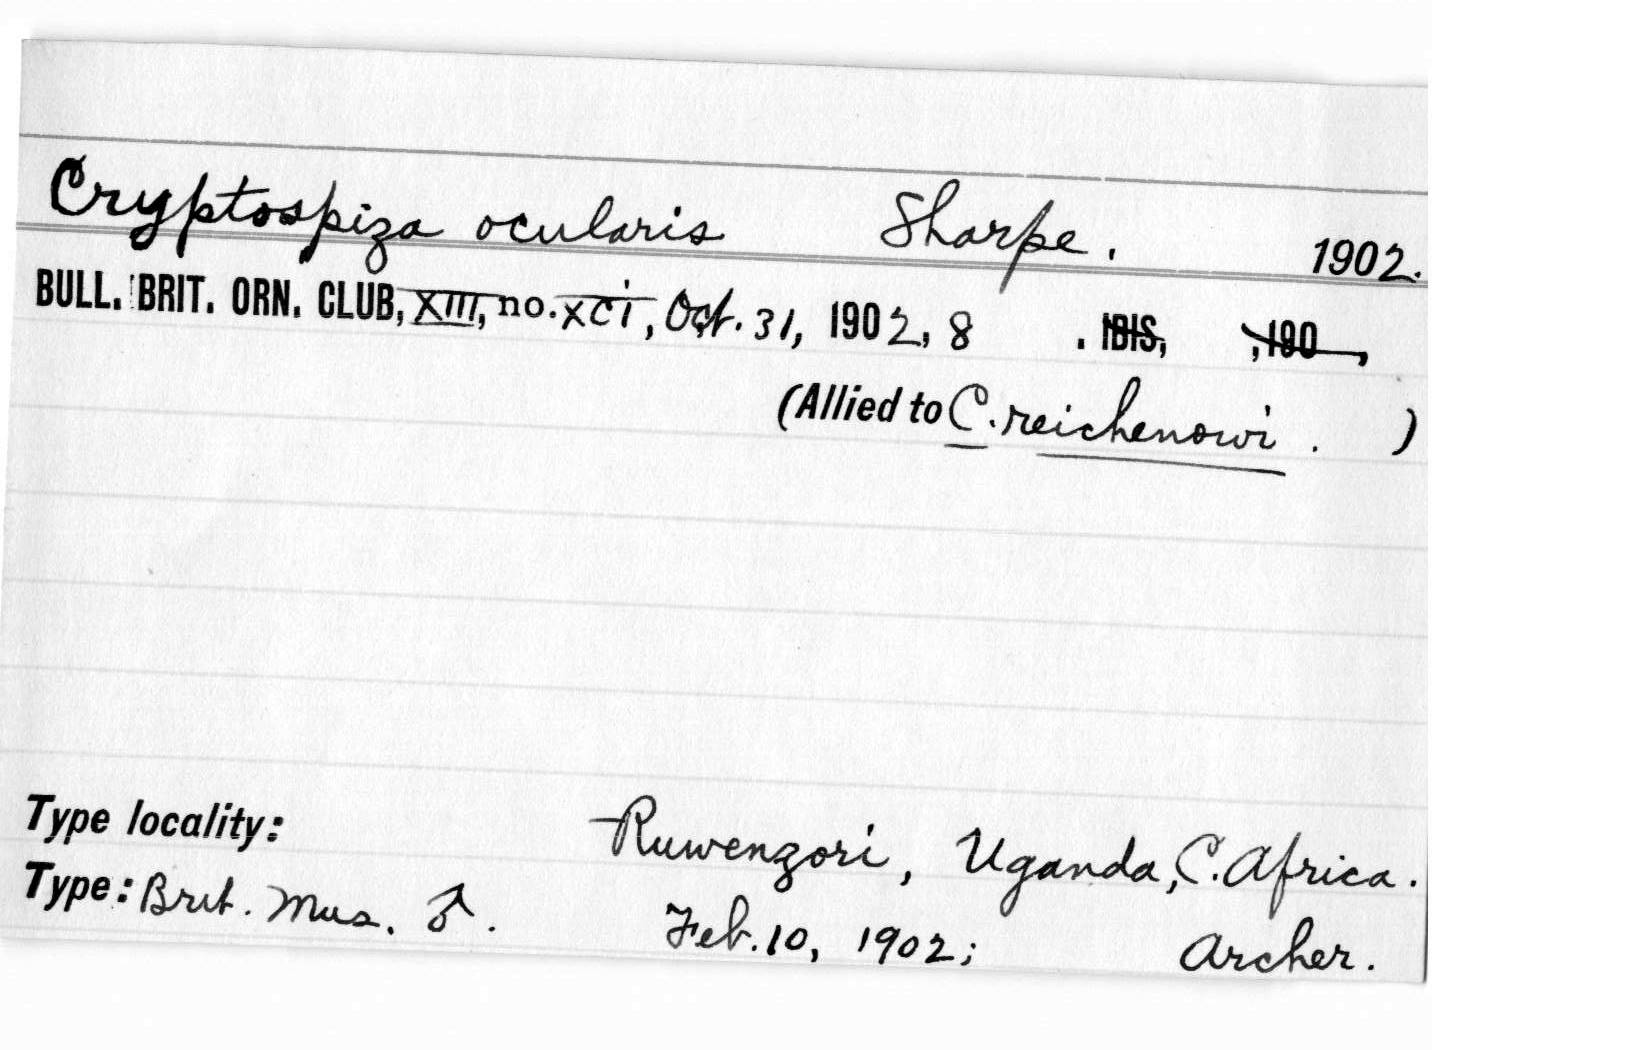 Cryptospiza ocularis Sharpe. 1902.
BULL. BRIT. ORN. CLUB, XIII, no. xci, Oct. 31, 1902, 8 . IBIS, , 190 ,
(Allied to C. reichenowi . )
Type locality: Ruwenzori, Uganda, C. Africa.
Type: Brit. Mus. ♂. Feb. 10, 1902; Archer.